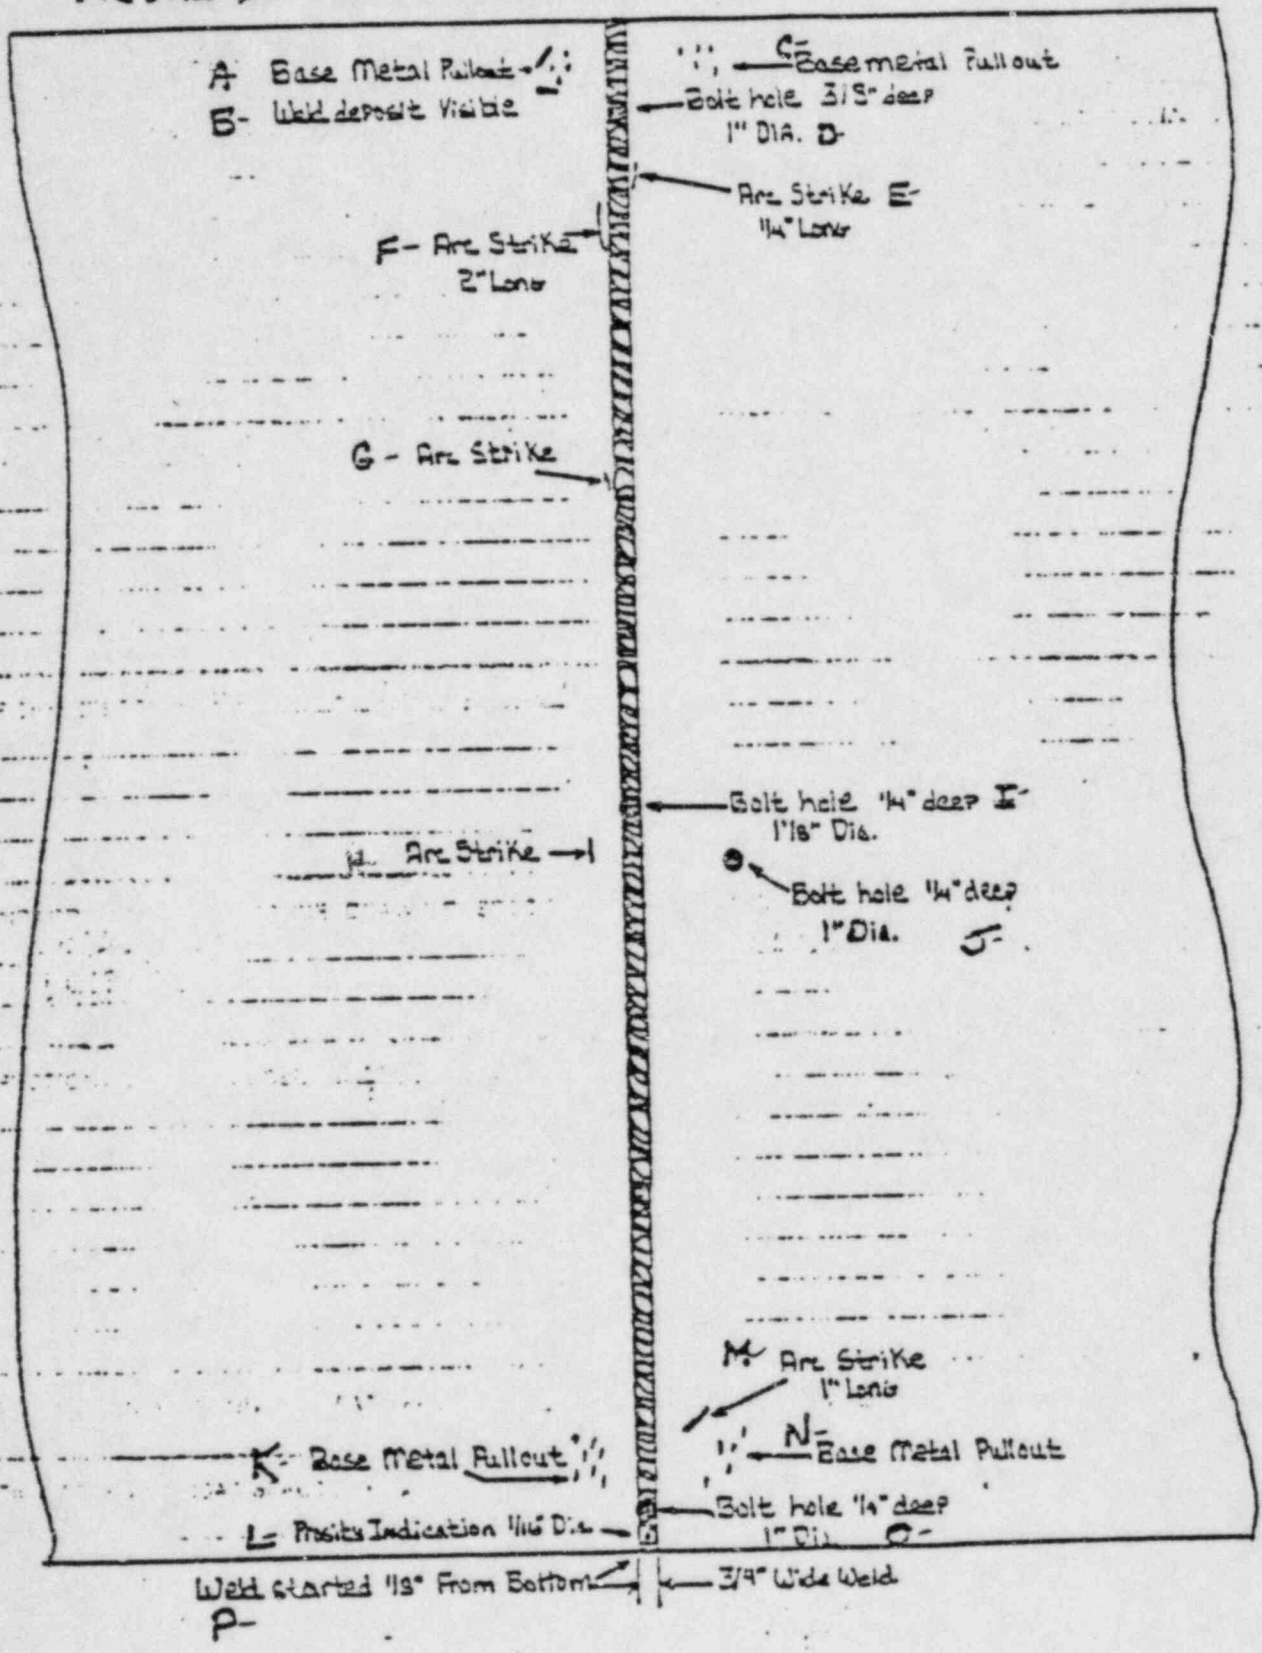 A Base Metal Pullout
B- Weld deposit Visible
C-
Base metal Pullout
Bolt hole 3/8" deep
1" DIA. D-
Arc Strike E-
1/4" Long
F- Arc Strike
2" Long
G- Arc Strike
Bolt hole 1/4" deep I-
1 1/8" Dia.
H. Arc Strike
Bolt hole 1/4" deep
1" Dia. J-
M- Arc Strike
1" Long
K- Base Metal Pullout
N-
Base Metal Pullout
Bolt hole 1/4" deep
1" Dia O-
L- Prosity Indication 1/16" Dia
Weld started 1/8" From Bottom
3/4" Wide Weld
P-